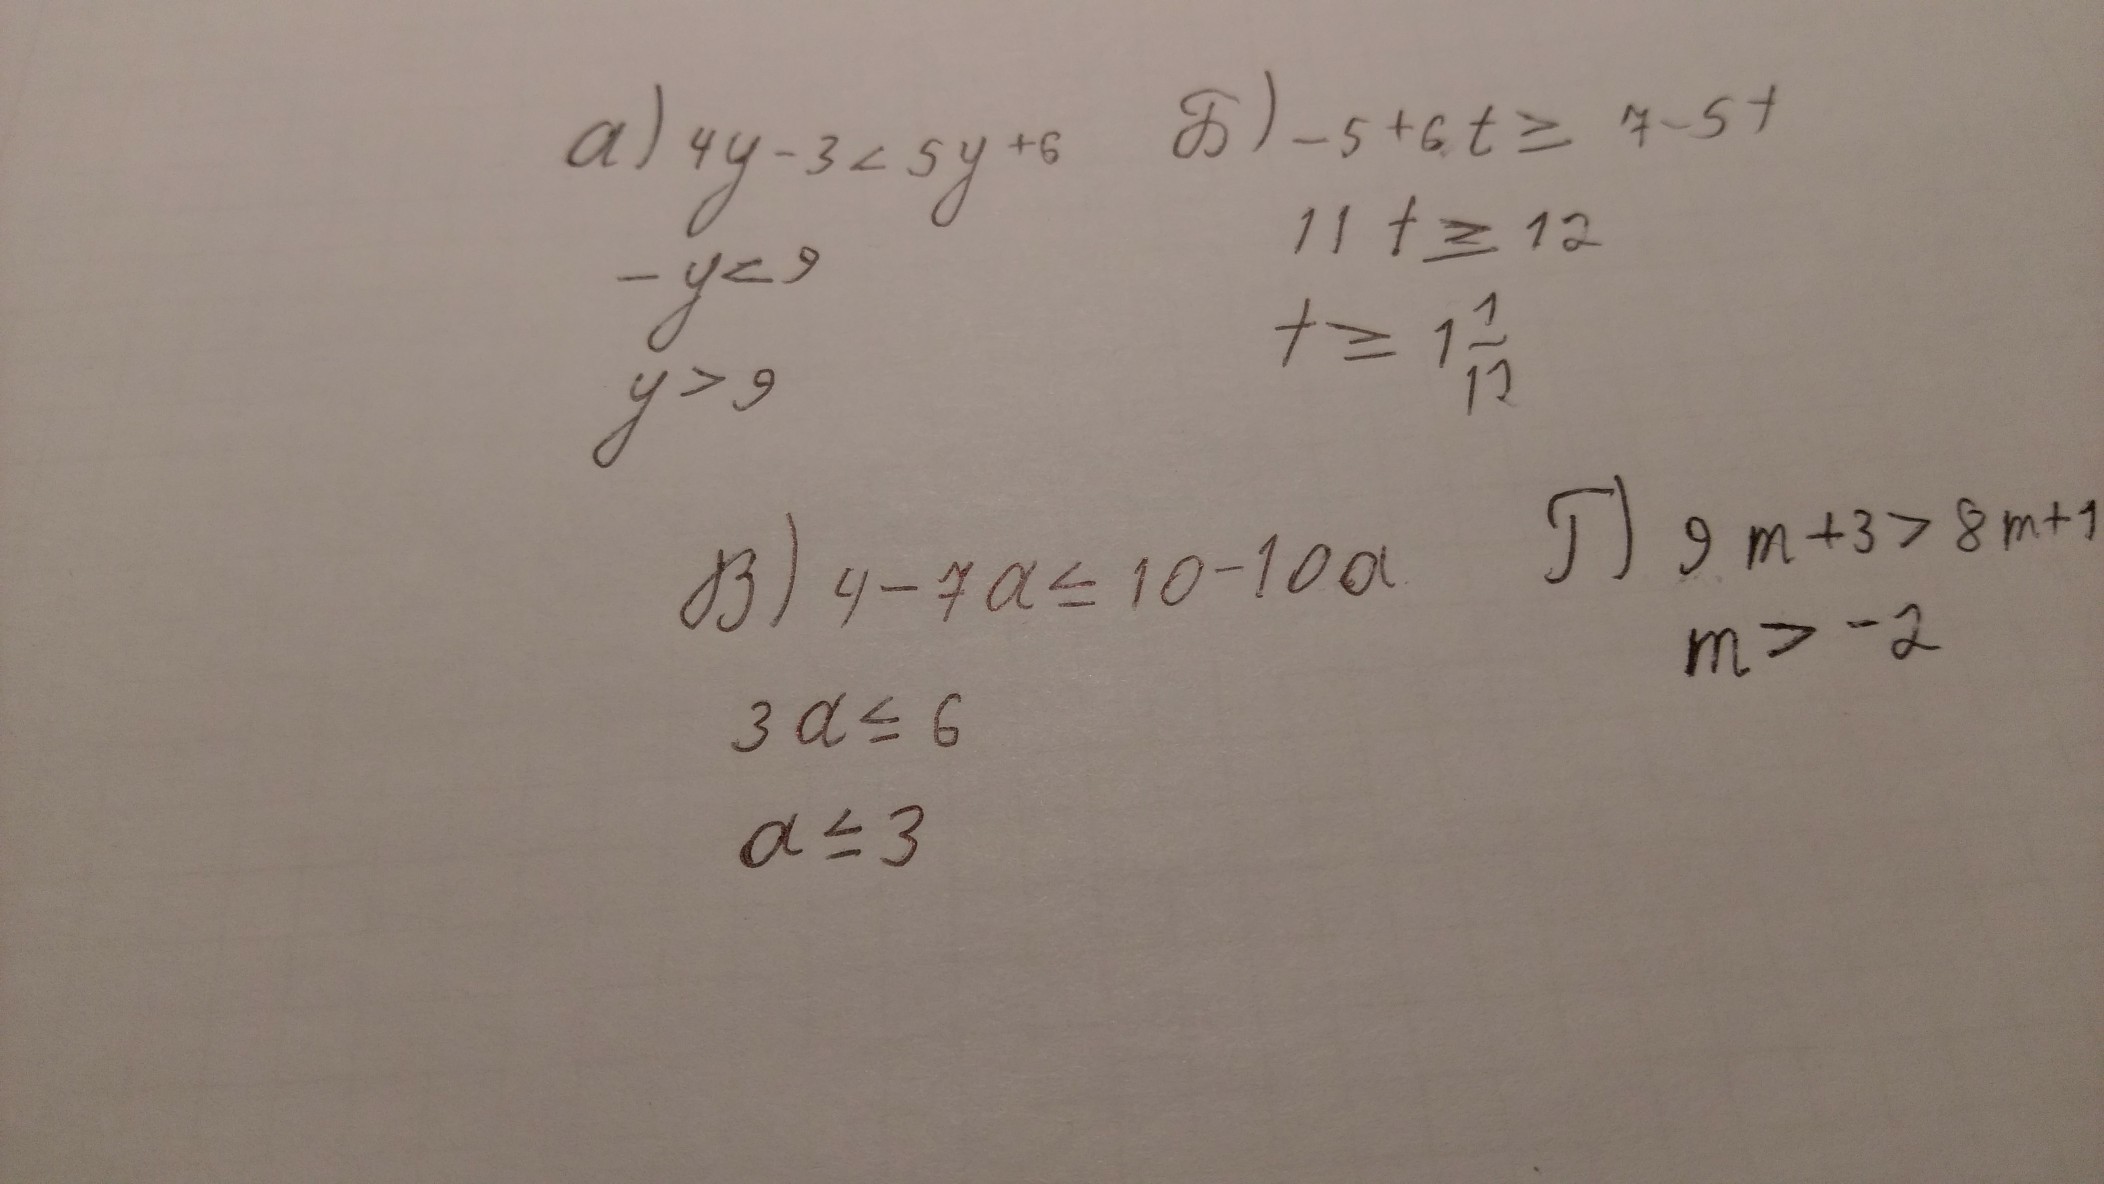 а) 4y-3<5y+6
-y<9
y>9
Б) -5+6t≥ 7-5t
11t≥12
t≥ 1 1/12
В) 4-7a≤10-10a
3a≤6
a≤3
Г) 9m+3>8m+1
m>-2